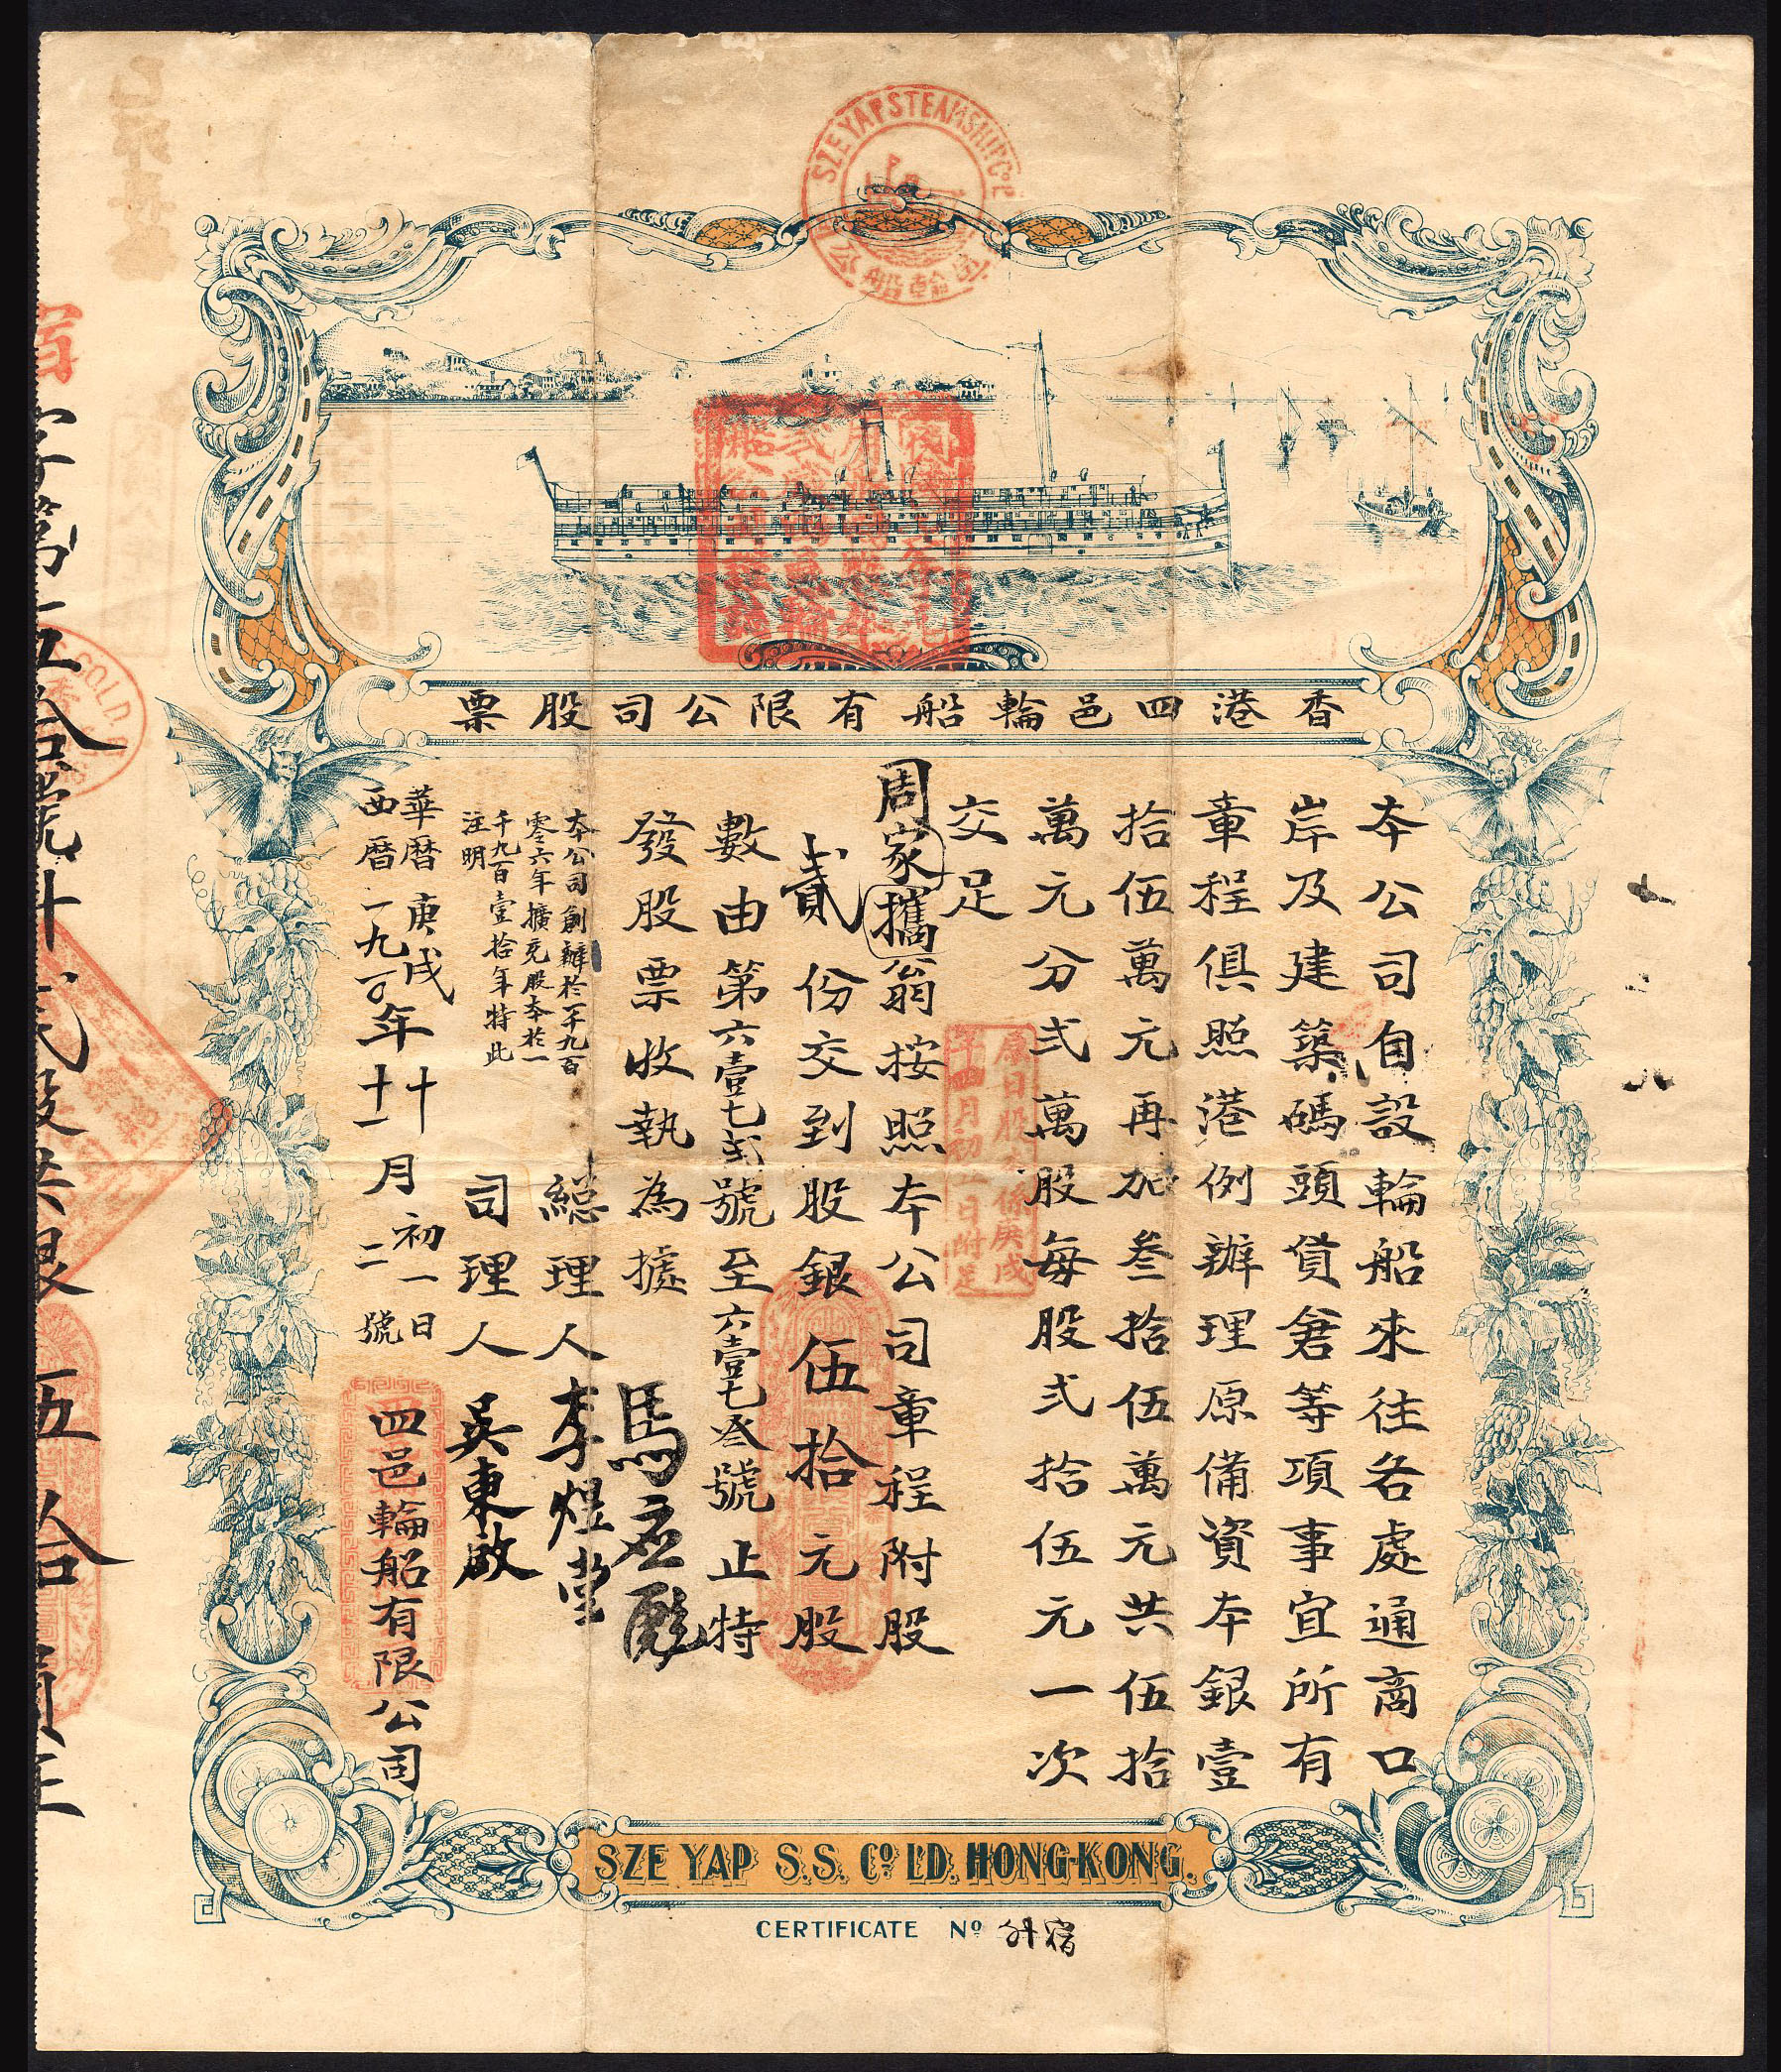 SZE YAP STEAMSHIP Co
香港四邑輪船有限公司股票
本公司自設輪船來往各處通商口
岸及建築碼頭貨倉等項事宜所有
章程俱照港例辦理原備資本銀壹
拾伍萬元再加叁拾伍萬元共伍拾
萬元分弍萬股每股弍拾伍元一次
交足
周家攜翁按照本公司章程附股
貳份交到股銀伍拾元股
數由第六壹七弍號至六壹七叁號止特
發股票收執為據
本公司創辦於一千九百
零六年擴充股本於一
千九百壹拾年特此
注明
馬應彪
總理人李煜堂
司理人吳東啟
華曆庚戌年十月初一日
西曆一九一〇年十一月二號
四邑輪船有限公司
原日股本係庚戌
年四月初五日附足
SZE YAP S.S. Co LD. HONG-KONG.
CERTIFICATE No